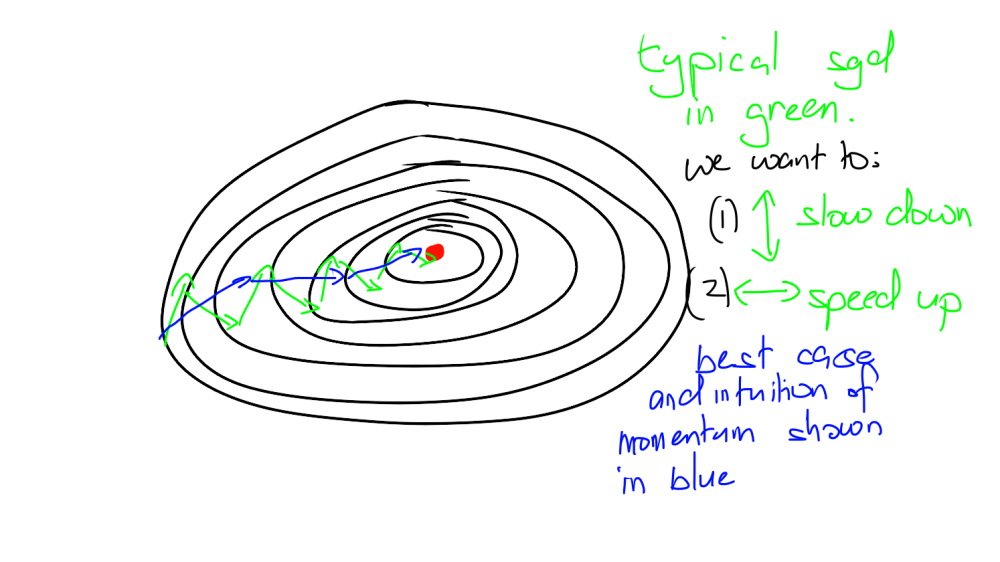 typical sgd
in green.
we want to:
(1) slow down
(2) speed up
best case
and intuition of
momentum shown
in blue